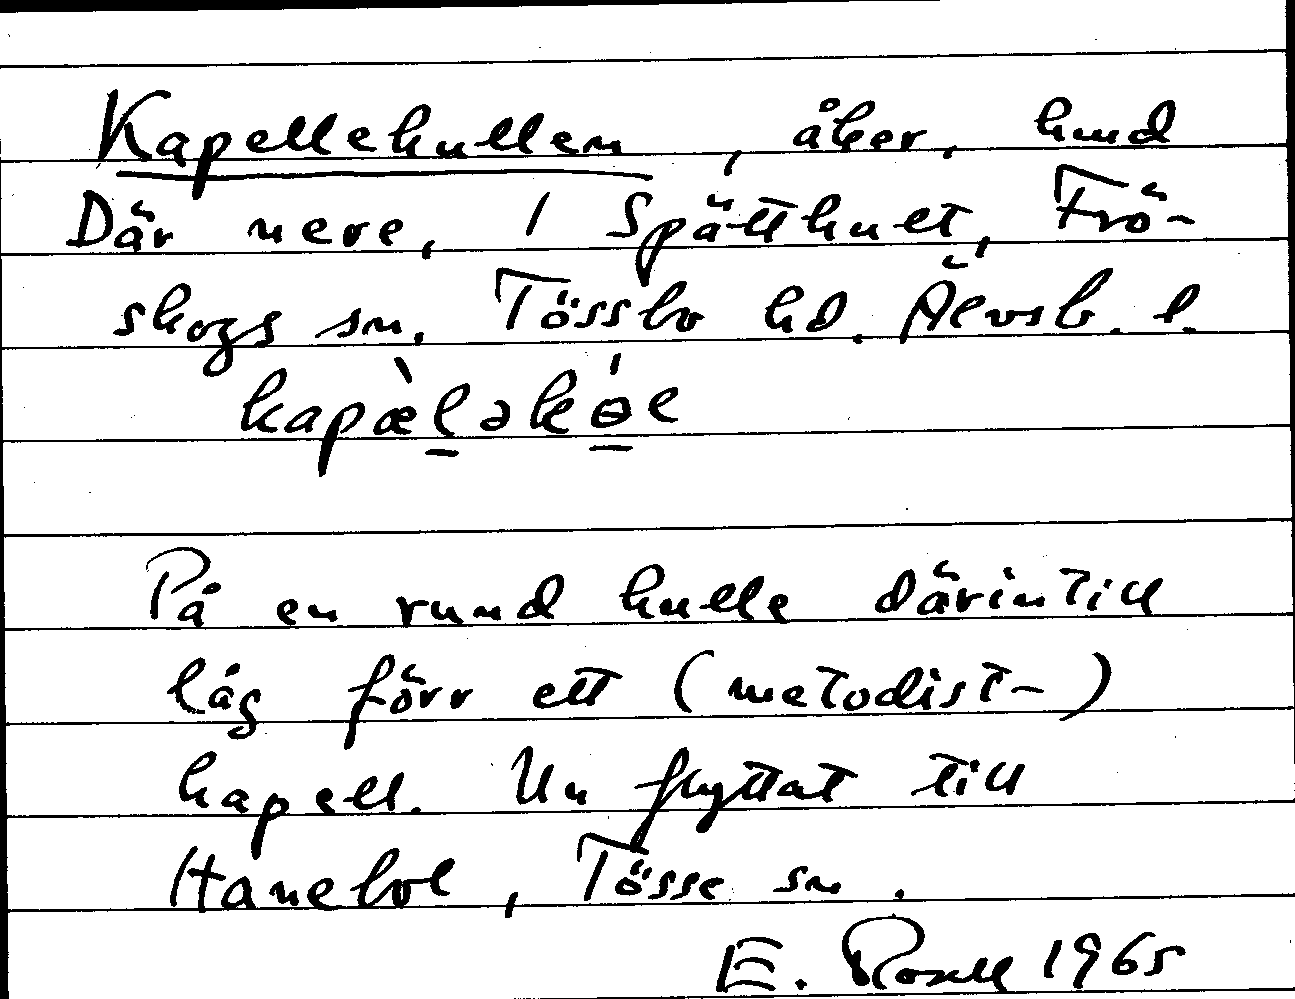 Kapellekullen, åker, kund
Där nere, 1 Spätthult, Frö-
skogs sn. Tössbo hd. Älvsb. l.
kapæ̀l̠əkɵ̠́l
På en rund kulle därintill
låg förr ett (metodist-)
kapell. Nu flyttat till
Hanebol, Tösse sn.
E. Rosell 1965